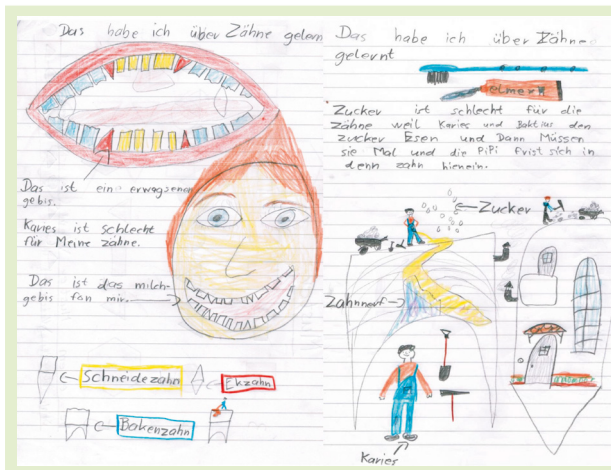 Das habe ich über Zähne gelern
Das ist eine erwagsenen
gebis.
Karies ist schlecht
für Meine zähne.
Das ist das milch-
gebis fon mir.
Schneidezahn
Ekzahn
Bakenzahn
Das habe ich über Zähne
gelernt
elmex
Zucker ist schlecht für die
Zähne weil Karies und Baktius den
zucker Esen und Dann Müssen
sie Mal und die PiPi frist sich in
denn zahn hienein.
Zucker
Zahnnerf
Karies